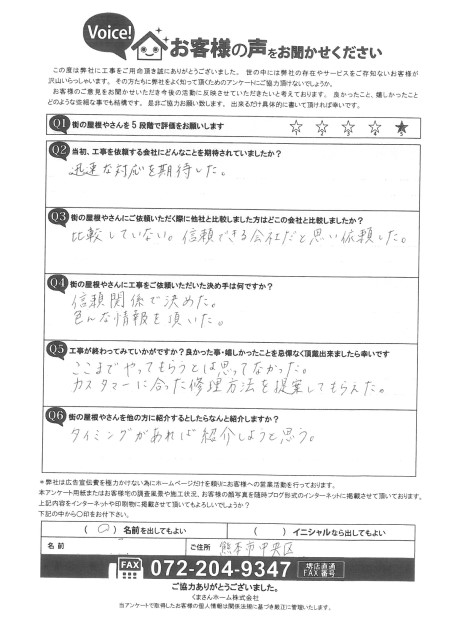 Voice!
お客様の声をお聞かせください
この度は弊社に工事をご用命頂き誠にありがとうございました。 世の中には弊社の存在やサービスをご存知ないお客様が
沢山いらっしゃいます。 その方たちに弊社をよく知って頂くためのアンケートにご協力頂けないでしょうか。
お客様のご意見をお聞かせいただき今後の活動に反映させていただきたいと考えております。 良かったこと、嬉しかったこと
どのような些細な事でも結構です。 是非ご協力お願い致します。 出来るだけ具体的に書いて頂ければ幸いです。
Q1 街の屋根やさんを5段階で評価をお願いします
1 2 3 4 5
Q2 当初、工事を依頼する会社にどんなことを期待されていましたか？
迅速な対応を期待した。
Q3 街の屋根やさんにご依頼いただく際に他社と比較しました方はどこの会社と比較しましたか？
比較していない。信頼できる会社だと思い依頼した。
Q4 街の屋根やさんに工事をご依頼いただいた決め手は何ですか？
信頼関係で決めた。
色んな情報を頂いた。
Q5 工事が終わってみていかがですか？良かった事・嬉しかったことを忌憚なく頂戴出来ましたら幸いです
ここまでやってもらうとは思ってなかった。
カスタマーに合った修理方法を提案してもらえた。
Q6 街の屋根やさんを他の方に紹介するとしたらなんと紹介しますか？
タイミングがあれば紹介しようと思う。
＊弊社は広告宣伝費を極力かけない為にホームページだけを頼りにお客様への営業活動を行っております。
本アンケート用紙またはお客様宅の調査風景や施工状況、お客様の顔写真を随時ブログ形式のインターネットに掲載させて頂いております。
上記内容をインターネットや印刷物に掲載させて頂いてもよろしいでしょうか？
下記の中から〇印をお付下さい。
（ 〇 ）名前を出してもよい （ ）イニシャルなら出してもよい
名前 ご住所 熊本市中央区
FAX 072-204-9347 堺店直通
FAX番号
ご協力ありがとうございました。
くまさんホーム株式会社
当アンケートで取得したお客様の個人情報は関係法規に基づき厳正に管理いたします。